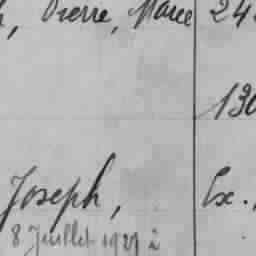 Pierre, Marie 24
130
Joseph, Ex.
8 Juillet 1929 à